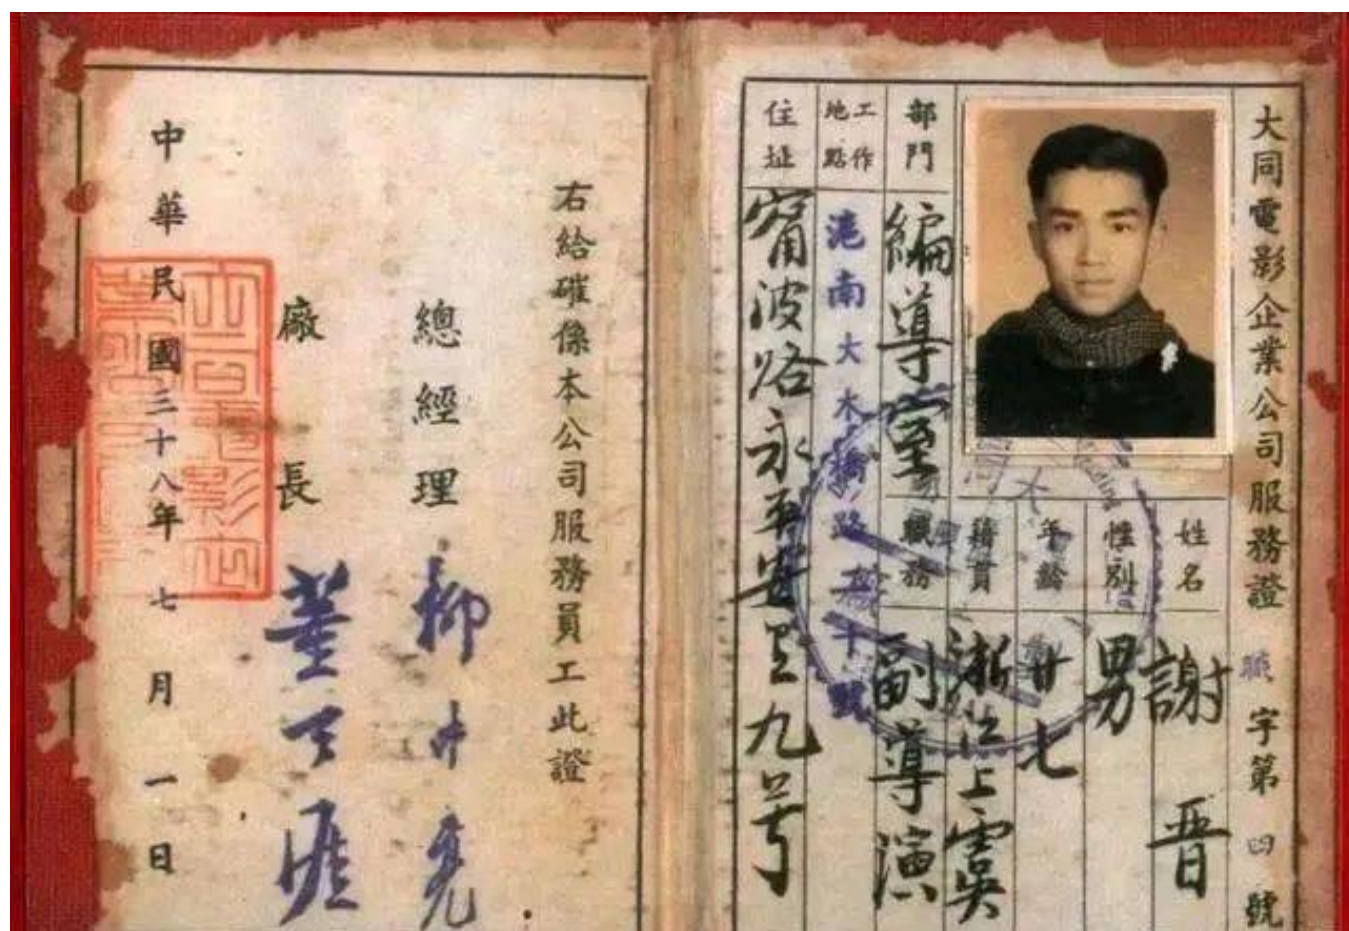 大同電影企業公司服務證 職字第四號
姓名 謝晋
性別 男
年齡 廿七
籍貫 浙江上虞
職務 副導演
部門 編導室
工作地點 滬南大木橋路
住址 甯波路永平安里九号
右給確係本公司服務員工此證
總經理 柳中亮
廠長 董天涯
中華民國三十八年七月一日